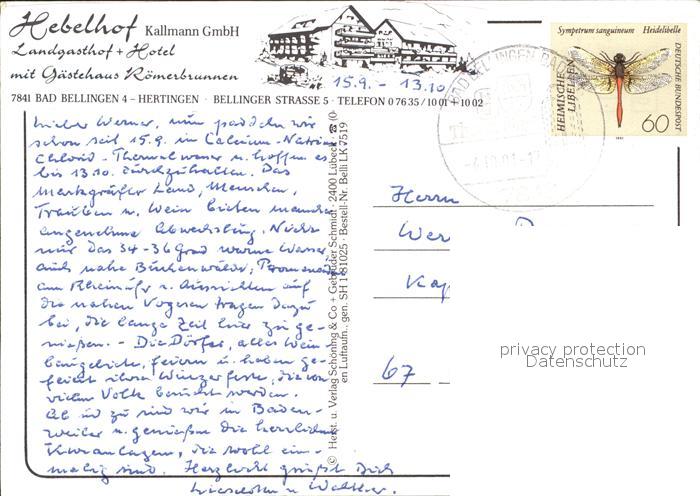 Hebelhof Kallmann GmbH
Landgasthof + Hotel
mit Gästehaus Römerbrunnen
15.9. - 13.10
7841 BAD BELLINGEN 4 – HERTINGEN · BELLINGER STRASSE 5 · TELEFON 0 76 35 / 10 01 + 10 02
Sympetrum sanguineum Heidelibelle
HEIMISCHE LIBELLEN
DEUTSCHE BUNDESPOST
60
BAD BELLINGEN
Lieber Werner, nun paddeln wir
schon seit 15.9. in Calcium-Natrium
Chlorid-Thermalwasser u. hoffen es
bis 13.10. durchzuhalten. Das
Markgräfler Land, Menschen,
Trauben u. Wein bieten manche
angenehme Abwechslung. Nicht
nur das 34-36 Grad warme Wasser,
auch nahe Buchenwälder, Promenaden
am Rheinufer u. Aussichten auf
die nahen Vogesen tragen dazu
bei, die lange Zeit hier zu ge-
nießen. - Die Dörfer, alles Wein-
baugebiete, feiern u. haben ge-
feiert ihre Winzerfeste, die von
vielen Volk besucht werden.
Ab und zu sind wir in Baden-
weiler u. genießen die herrlichen
Kuranlagen, die wohl ein-
malig sind. Herzlichst grüßt Dich
Lieselotte u. Walther.
© Herst. u. Verlag Schöning & Co + Gebrüder Schmidt · 2400 Lübeck · ☎ (0
en Luftaufn., gen. SH 1-81025 · Bestell-Nr. Belli LK 7519
Herrn
Wer
Kap
67
privacy protection
Datenschutz